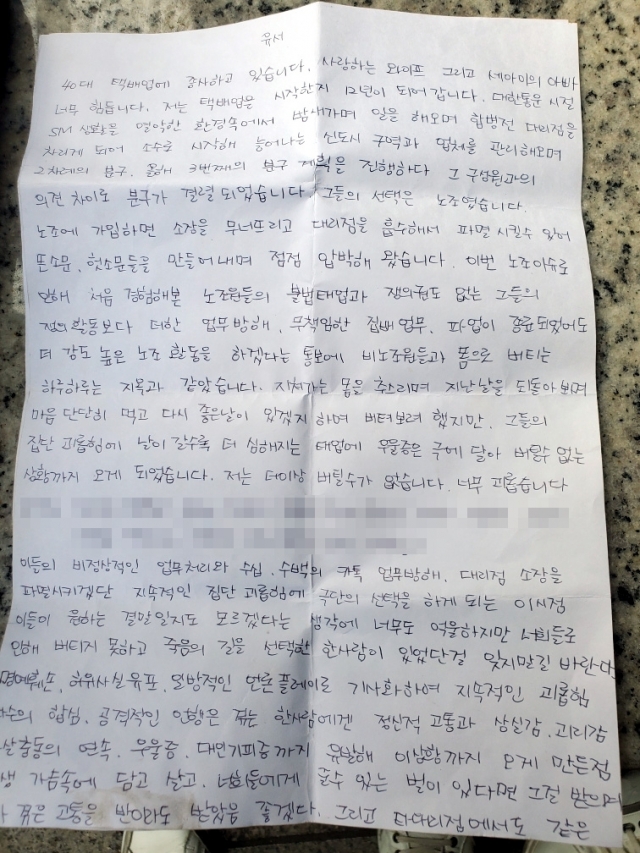 유서
40대 택배업에 종사하고 있습니다. 사랑하는 와이프 그리고 세아이의 아빠
너무 힘듭니다. 저는 택배업을 시작한지 12년이 되어 갑니다. 대한통운 시절
SM 상하를 열악한 환경속에서 밤새가며 일을 해오며 합병전 대리점을
차리게 되어 소수로 시작해 늘어나는 신도시 구역과 업체를 관리해오며
2차례의 분구. 올해 3번째의 분구 계획을 진행하다 그 구성원과의
의견 차이로 분구가 결렬 되었습니다. 그들의 선택은 노조였습니다.
노조에 가입하면 소장을 무너뜨리고 대리점을 흡수해서 파멸 시킬수 있어
뜬소문, 헛소문들을 만들어내며 점점 압박해 왔습니다. 이번 노조이슈로
인해 처음 경험해본 노조원들의 불법태업과 쟁의권도 없는 그들의
쟁의 활동보다 더한 업무방해, 무책임한 집배 업무, 파업이 종료되었어도
더 강도 높은 노조 활동을 하겠다는 통보에 비노조원들과 몸으로 버티는
하루하루는 지옥과 같았습니다. 지쳐가는 몸을 추스리며 지난날을 되돌아 보며
마음 단단히 먹고 다시 좋은날이 있겠지 하며 버텨보려 했지만, 그들의
집단 괴롭힘에 날이 갈수록 더 심해지는 태업에 우울증은 극에 달아 버틸수 없는
상황까지 오게 되었습니다. 저는 더이상 버틸수가 없습니다. 너무 괴롭습니다
이들의 비정상적인 업무처리와 수십, 수백의 카톡 업무방해, 대리점 소장을
파멸시키겠단 지속적인 집단 괴롭힘에 극단의 선택을 하게 되는 이시점
이들이 원하는 결말일지도 모르겠다는 생각에 너무도 억울하지만 너희들로
인해 버티지 못하고 죽음의 길을 선택한 한사람이 있었단걸 잊지말길 바란다
명예훼손, 허위사실 유포, 일방적인 언론 플레이로 기사화하여 지속적인 괴롭힘
수의 합심, 공격적인 언행은 한사람에겐 정신적 고통과 상실감, 괴리감
살충동의 연속, 우울증, 대인기피증까지 유발해 이상황까지 오게 만든점
생 가슴속에 담고 살고, 너희들에게 줄수 있는 벌이 있다면 그걸 받으며
꼭 같은 고통을 받아라도 받았음 좋겠다. 그리고 타대리점에서도 같은